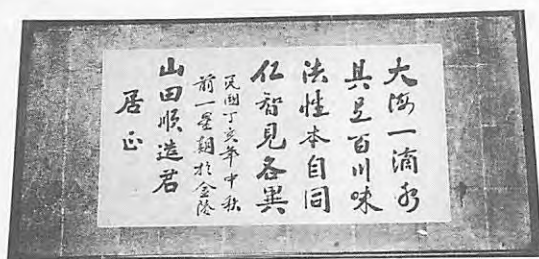 大海一滴水
具足百川味
法性本自同
仁智見各異
民國丁亥年中秋
前一星期於金陵
山田順造君
居正